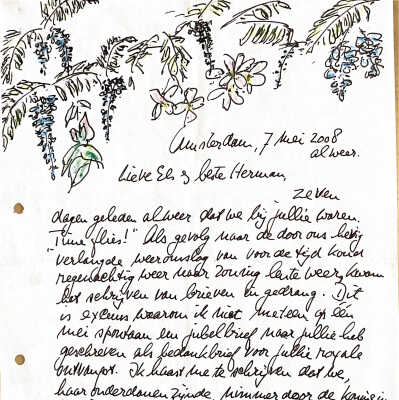 Amsterdam, 7 mei 2008
alweer.
Lieve Els & beste Herman,
zeven
dagen geleden alweer dat we bij jullie waren.
"Time flies!" Als gevolg naar de door ons hevig
verlangde weeromslag van voor de tijd koud
regenachtig weer naar zonnig lente weer, kwam
het schrijven van brieven in gedrang. Dit
is excuus waarom ik niet meteen op één
mei spontaan een jubelbrief naar jullie heb
geschreven als bedankbrief voor jullie royale
ontvangst. Ik haast me te schrijven dat we,
haar onderdanen zijnde, nimmer door de koningin